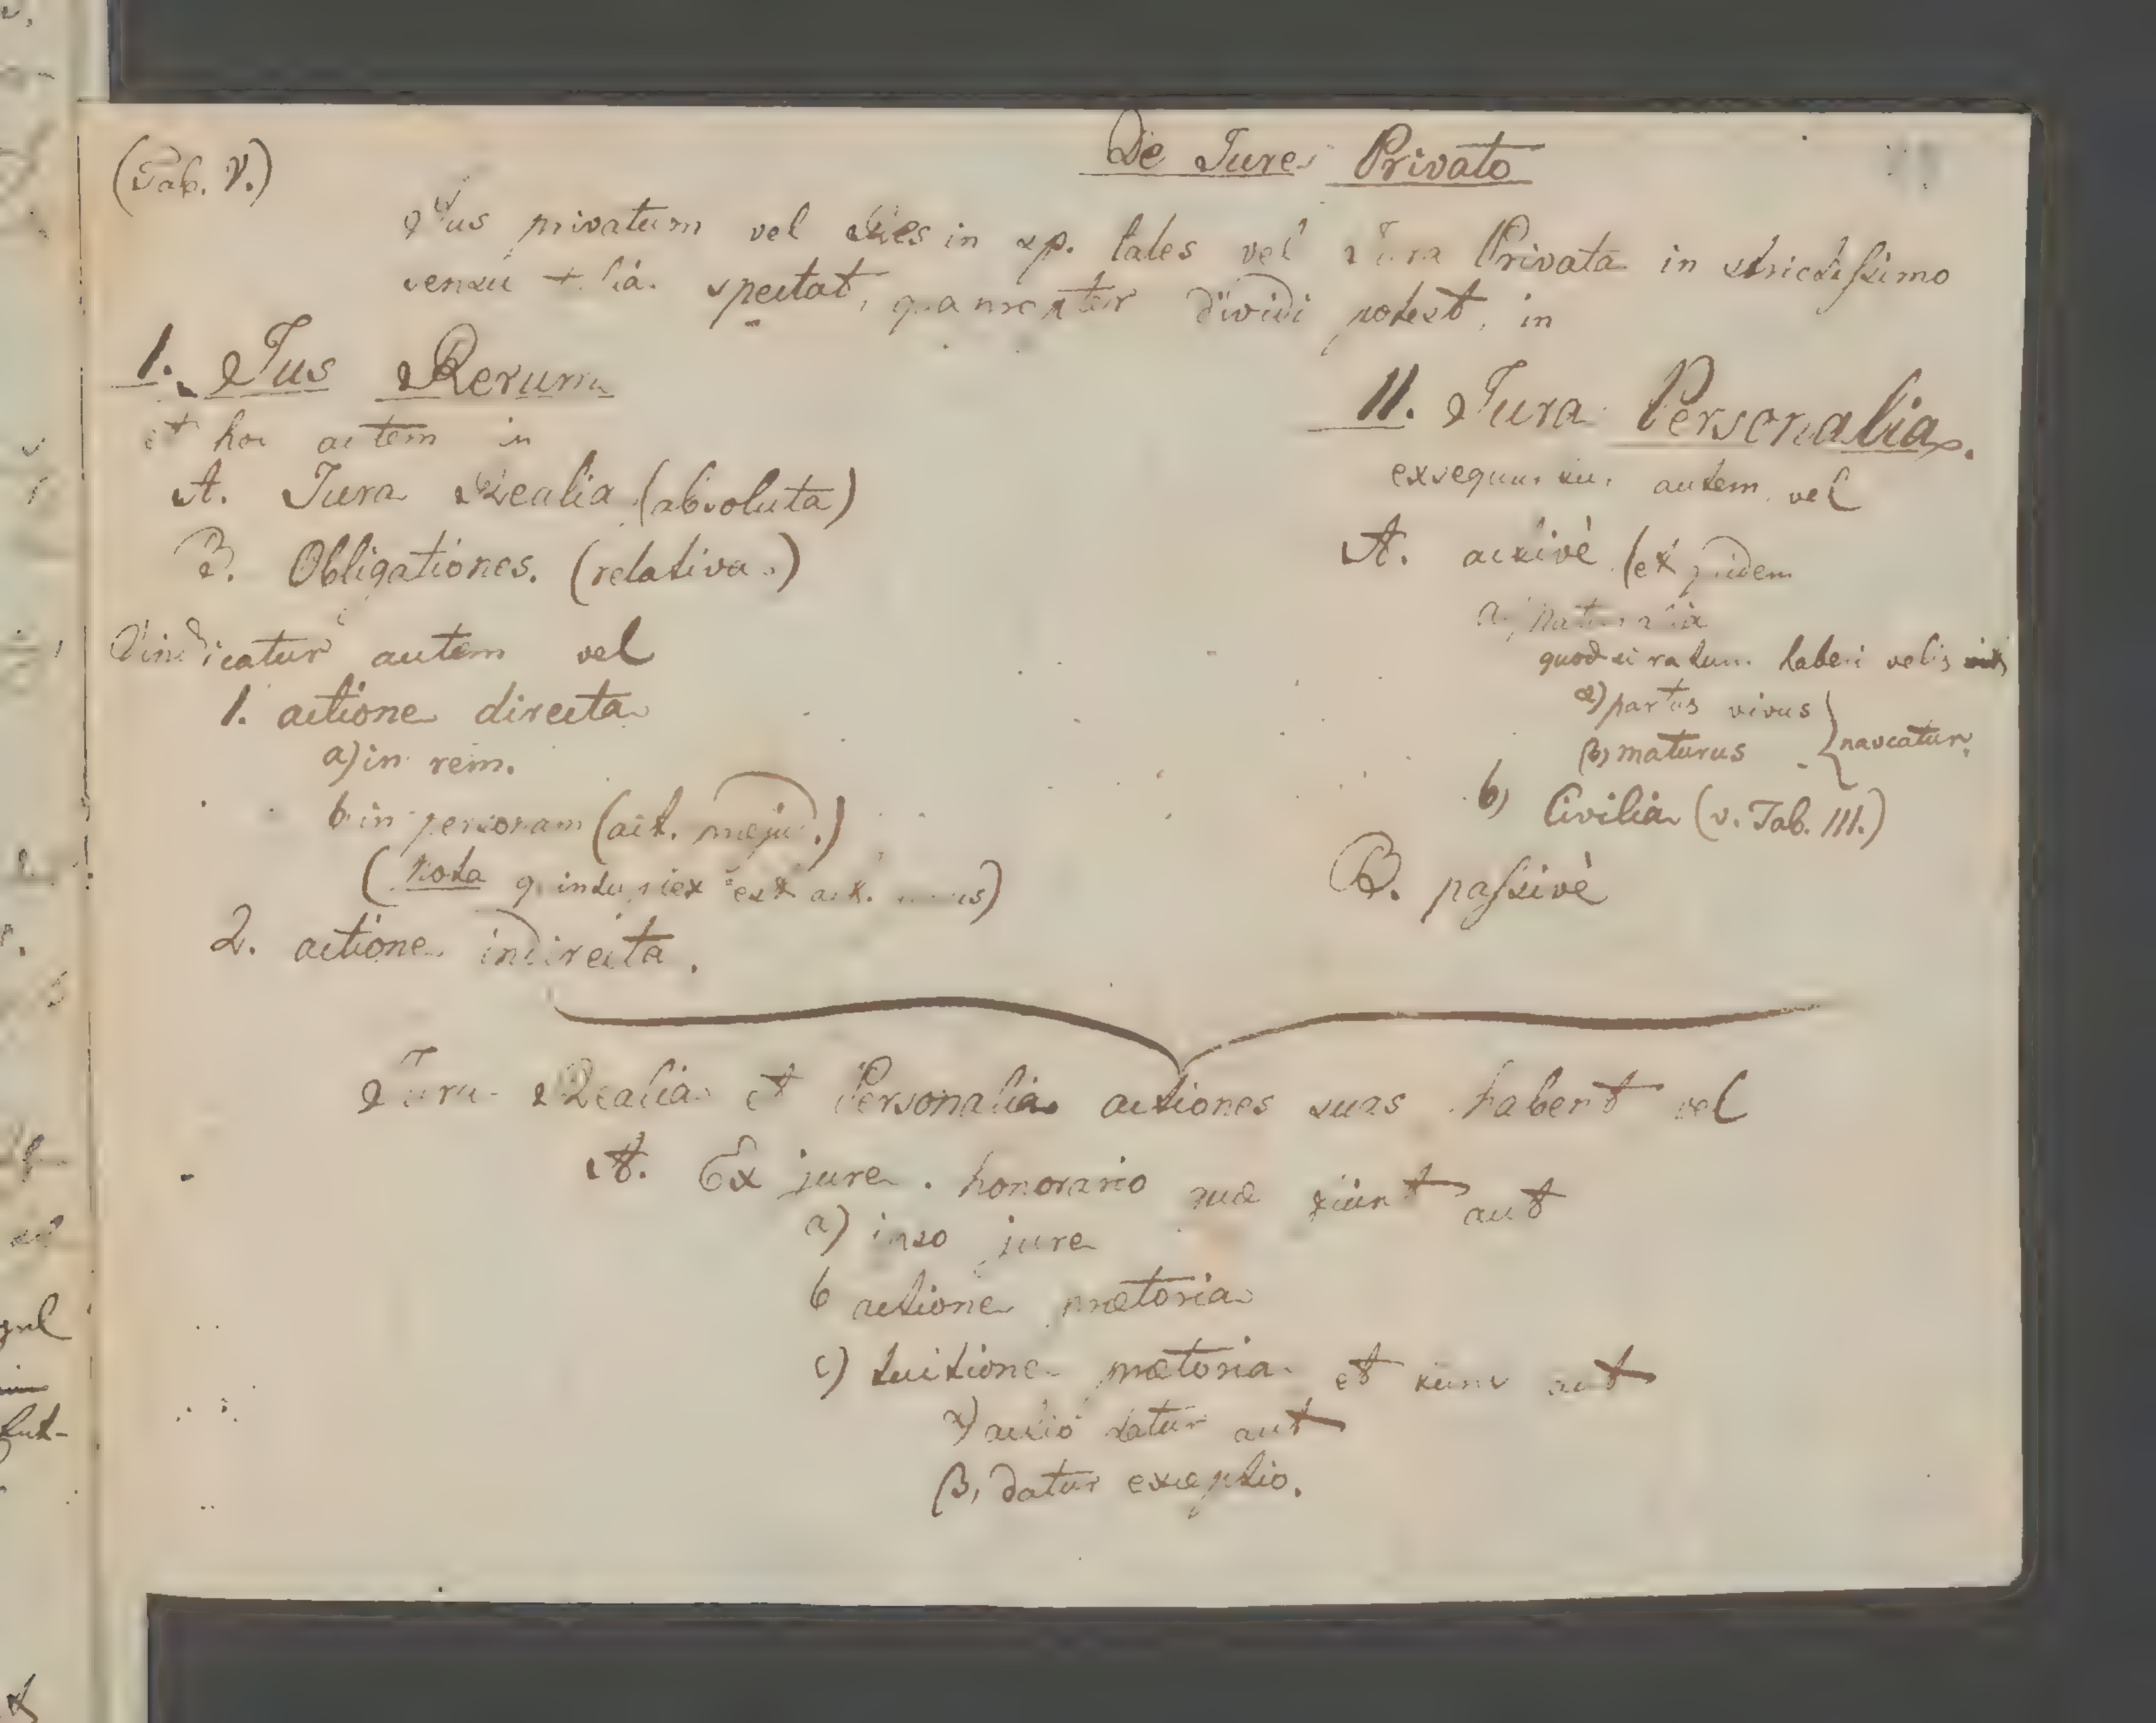 (Tab. V.)
De Jure Privato
Jus privatum vel in sp. tales vel Jura Privata in strictissimo
sensu spectat, dividi potest, in
I. Jus Rerum
et hoc autem in
A. Jura Realia (absoluta)
B. Obligationes. (relativa.)
Vindicatur autem vel
1. actione directa
a) in rem.
b in personam (act. præjud.)
(Nota est act.)
2. actione indirecta.
II. Jura Personalia.
exsequuntur autem vel
A. activè (et quidem
a) Naturalia
quod si ratum haberi velis
α) partus vivus
β) maturus } nascatur.
b) Civilia (v. Tab. III.)
B. passivè
Jura Realia et Personalia actiones suas habent vel
A. Ex jure honorario quæ fiunt aut
a) ipso jure
b actione prætoria
c) tuitione prætoria et tunc aut
α) actio datur aut
β, datur exceptio.